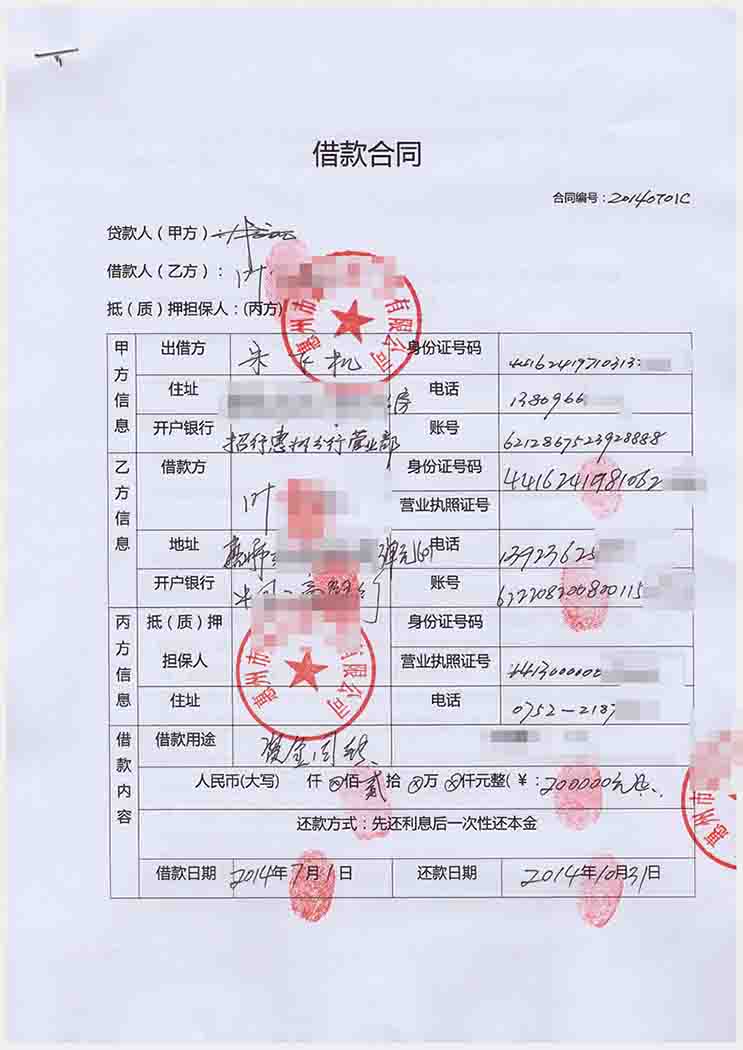 借款合同
合同编号：20140701C
贷款人（甲方）
借款人（乙方）：叶
抵（质）押担保人：(丙方)
惠州市 有限公司
甲方信息
出借方 宋 机 身份证号码 44162419710313
住址 房 电话 1380966
开户银行 招行惠州分行营业部 账号 6212867523928888
乙方信息
借款方 叶 身份证号码 4416241981062
营业执照证号
地址 惠州市 单元 电话 13923625
开户银行 账号 622208200800115
丙方信息
抵（质）押担保人 身份证号码
营业执照证号 4413000000
惠州市 有限公司
住址 电话 0752－218
借款内容
借款用途 资金周转
人民币(大写) 仟⊗佰贰拾⊗万⊗仟元整(￥：200000元
惠州市
还款方式：先还利息后一次性还本金
借款日期 2014年7月1日 还款日期 2014年10月31日